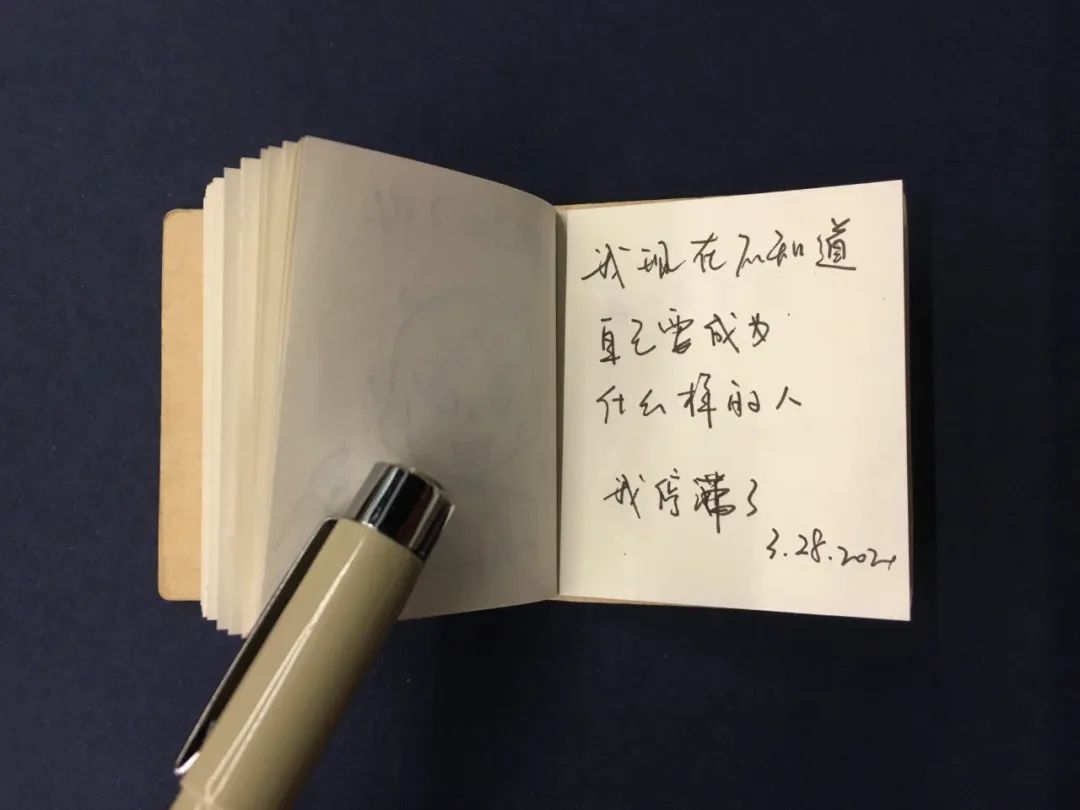 我现在不知道
自己要成为
什么样的人
我停滞了
3.28.2021